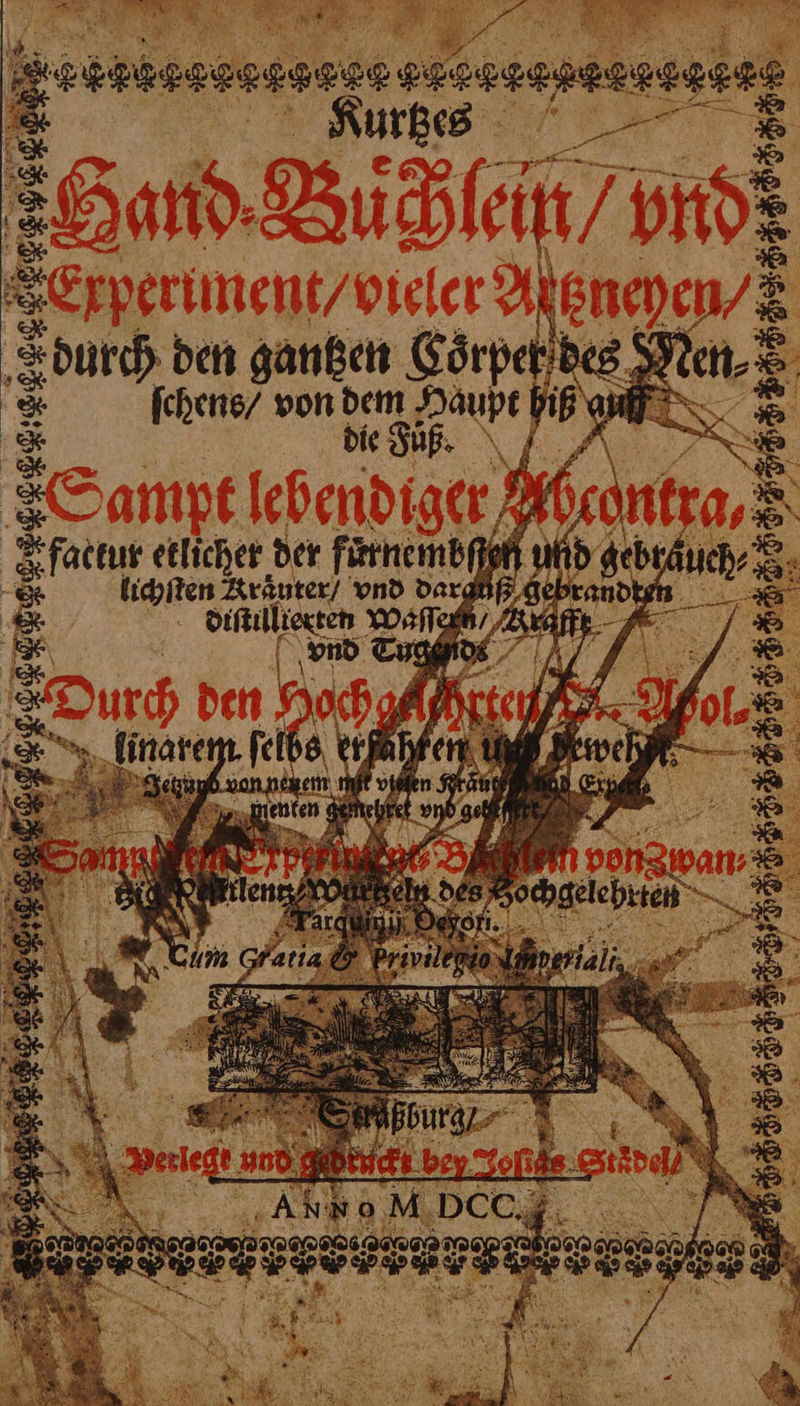 Kurtzes
Hand-Buͤchlein/ vnd
Experiment/ vieler Artzneyen/
durch den gantzen Coͤrper des Men-
ſchens/ von dem Haupt biß auff
die Fuͤß.
Sampt lebendiger Abcontra-
factur etlicher der fuͤrnembſten und gebraͤuch-
lichſten Kraͤuter/ vnd darauß gebrandten
diſtillierten Waſſern/ Krafft
vnd Tugende
Durch den Hochgelehrten Apol-
linarem ſelbs erfahren und bewehrt.
Jetzund von newem mit vielen Kraͤut und Expe-
rimenten gemehret vnd
Sampt dem Experiment Buͤchlein von Zwan-
tzig Peſtilentz Wurtzeln des Hochgelehrten
Tarquinij
Cum Gratia & Privilegio Imperiali.
Straßburg/
Verlegt und gedruckt bey Joſias Staͤdel/
Anno M DCC.